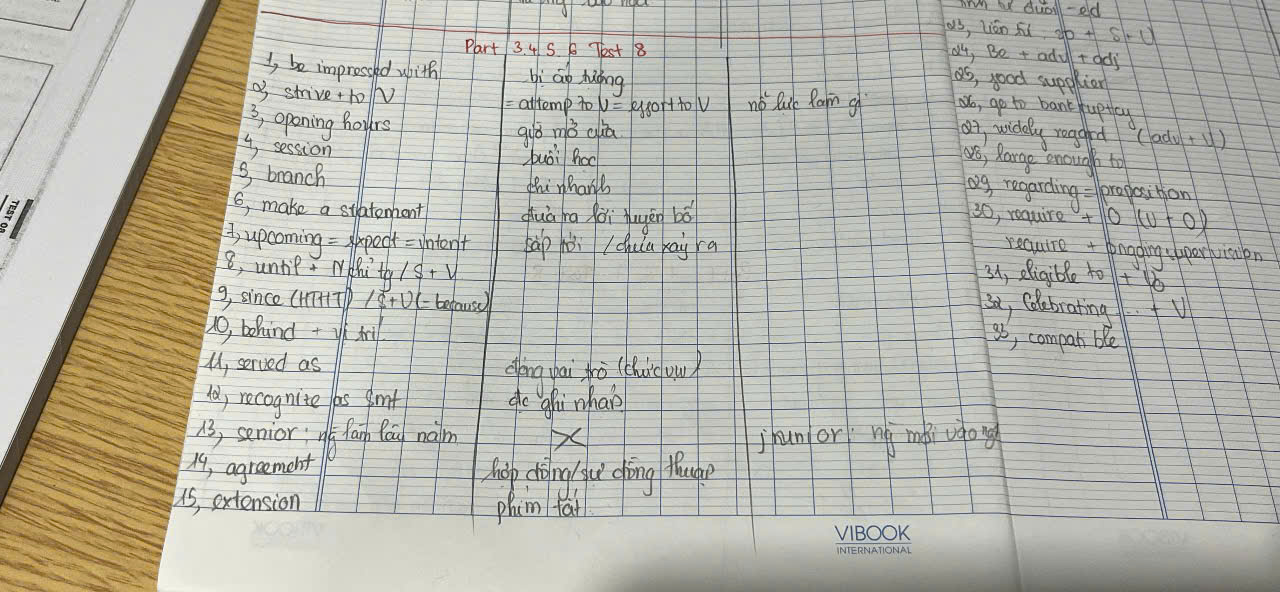 Part 3 4 5 6 Test 8
1, be impressed with bị ấn tượng
2, strive + to V = attemp to V = effort to V nỗ lực làm gì
3, opening hours giờ mở cửa
4, session buổi học
5, branch chi nhánh
6, make a statement đưa ra lời tuyên bố
7, upcoming = expect = intent sắp tới / chưa xảy ra
8, until + N chỉ tg / S + V
9, since (HTHT) / S+V (= because)
10, behind + vị trí
11, served as đóng vai trò (chức vụ)
12, recognize as smt đc ghi nhận
13, senior: ng làm lâu năm X junior: ng mới vào
14, agreement hợp đồng/sự đồng thuận
15, extension phím tắt
đuôi -ed
23, liên từ + S + V
24, Be + adv + adj
25, good supplier
26, go to bankruptcy
27, widely regard (adv + V)
28, large enough to
29, regarding = preposition
30, require + O (V + O)
require + ongoing supervision
31, eligible to +
32, Celebrating ... + V
33, compatible
TEST
VIBOOK
INTERNATIONAL